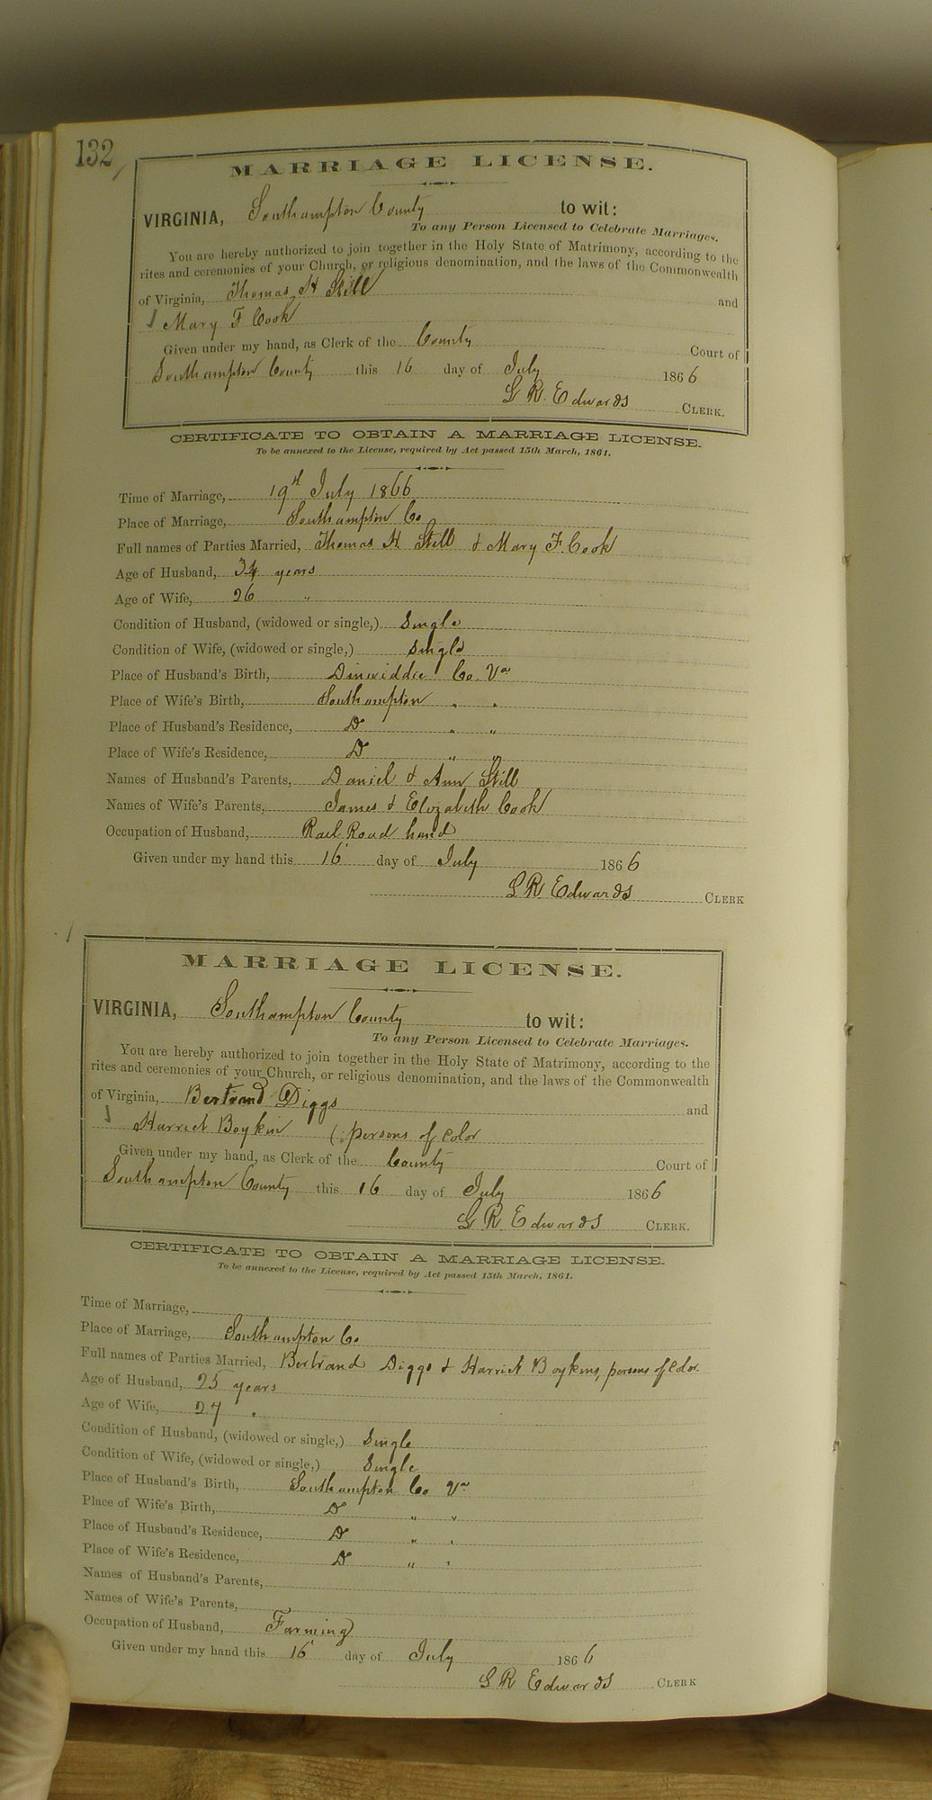 132
MARRIAGE LICENSE.
VIRGINIA, Southampton County to wit:
To any Person Licensed to Celebrate Marriages.
You are hereby authorized to join together in the Holy State of Matrimony, according to the
rites and ceremonies of your Church, or religious denomination, and the laws of the Commonwealth
of Virginia, Thomas H Still and
Mary F Cook
Given under my hand, as Clerk of the County Court of
Southampton County this 16 day of July 1866
L R Edwards CLERK.
CERTIFICATE TO OBTAIN A MARRIAGE LICENSE.
To be annexed to the License, required by Act passed 15th March, 1861.
Time of Marriage, 19th July 1866
Place of Marriage, Southampton Co
Full names of Parties Married, Thomas H. Still & Mary F. Cook
Age of Husband, 34 years
Age of Wife, 26 "
Condition of Husband, (widowed or single,) Single
Condition of Wife, (widowed or single,) Single
Place of Husband's Birth, Dinwiddie Co. Va
Place of Wife's Birth, Southampton " "
Place of Husband's Residence, Do " "
Place of Wife's Residence, Do " "
Names of Husband's Parents, Daniel & Ann Still
Names of Wife's Parents, James & Elizabeth Cook
Occupation of Husband, Rail Road hand
Given under my hand this 16 day of July 1866
L R Edwards CLERK
MARRIAGE LICENSE.
VIRGINIA, Southampton County to wit:
To any Person Licensed to Celebrate Marriages.
You are hereby authorized to join together in the Holy State of Matrimony, according to the
rites and ceremonies of your Church, or religious denomination, and the laws of the Commonwealth
of Virginia, Bertrand Diggs and
Harriet Boykin (persons of color
Given under my hand, as Clerk of the County Court of
Southampton County this 16 day of July 1866
L R Edwards CLERK.
CERTIFICATE TO OBTAIN A MARRIAGE LICENSE.
To be annexed to the License, required by Act passed 15th March, 1861.
Time of Marriage,
Place of Marriage, Southampton Co
Full names of Parties Married, Bertrand Diggs & Harriet Boykins, persons of color
Age of Husband, 25 years
Age of Wife, 27 "
Condition of Husband, (widowed or single,) Single
Condition of Wife, (widowed or single,) Single
Place of Husband's Birth, Southampton Co Va
Place of Wife's Birth, Do " "
Place of Husband's Residence, Do " "
Place of Wife's Residence, Do " "
Names of Husband's Parents,
Names of Wife's Parents,
Occupation of Husband, Farming
Given under my hand this 16 day of July 1866
L R Edwards CLERK